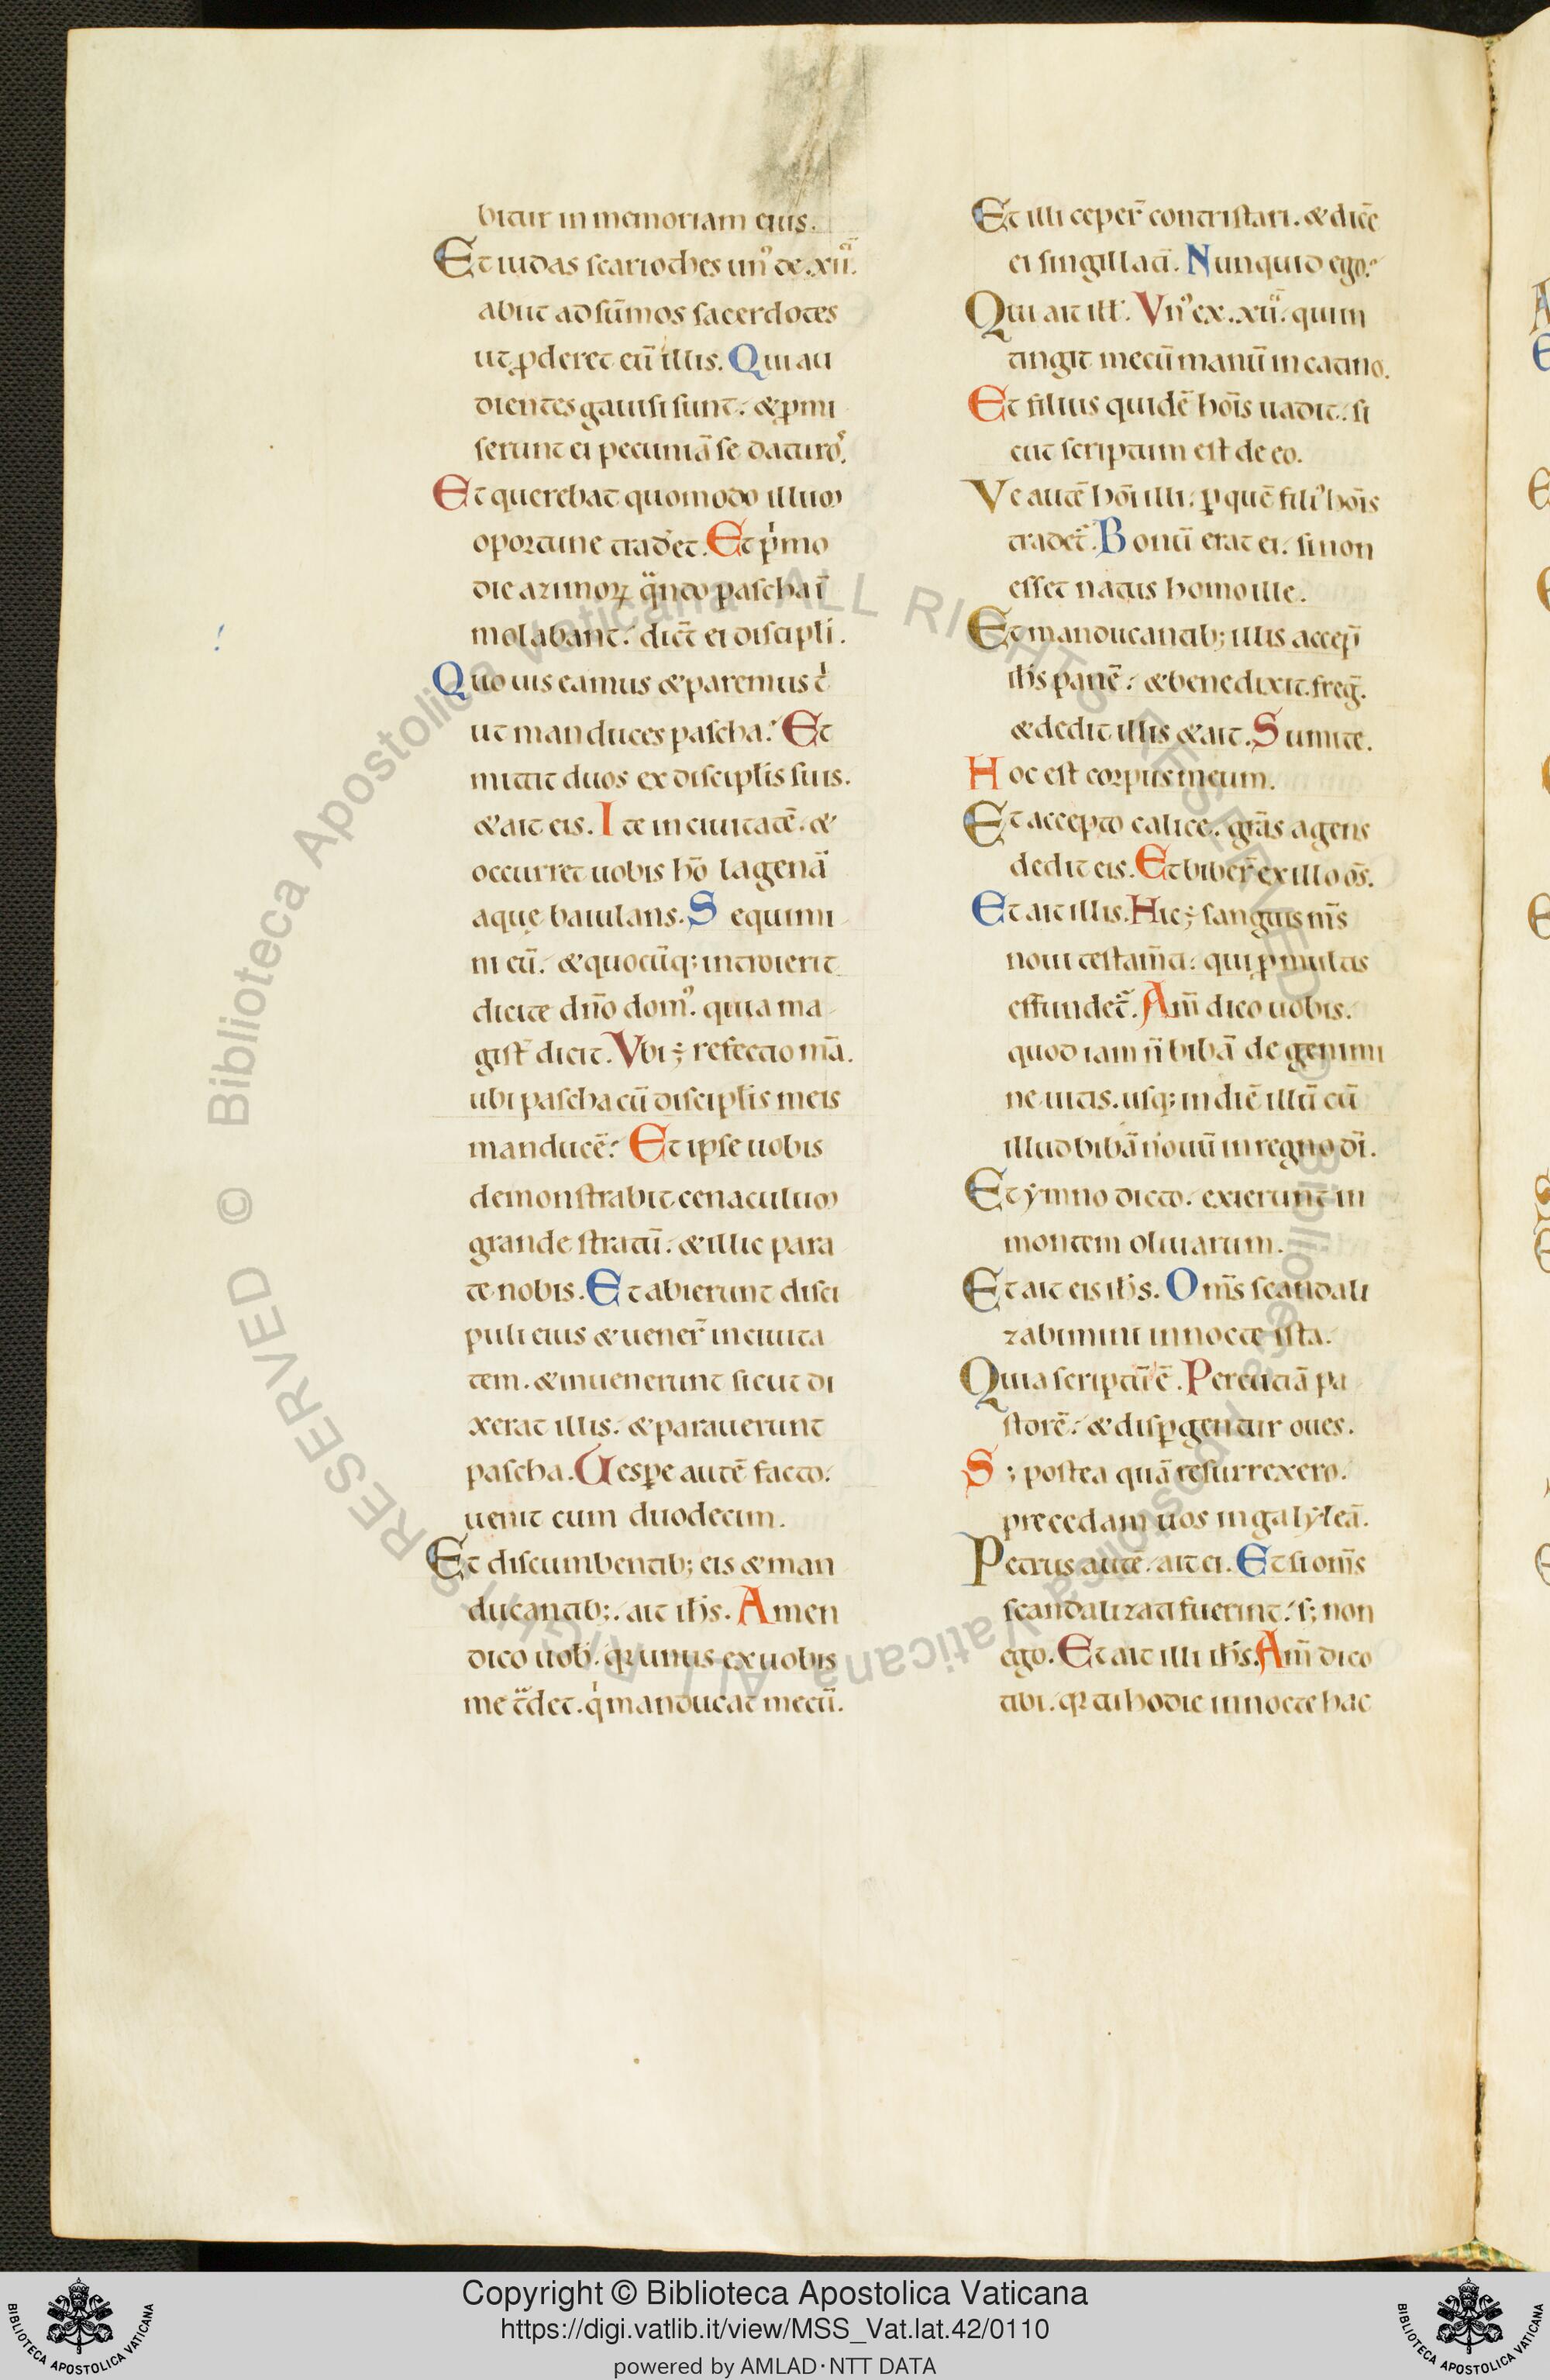 bitur in memoriam eius.
Et iudas scariothes un᾽ de .xii.
abiit ad sūmos sacerdotes
ut ꝓderet eū illis. Qui au
dientes gauisi sunt. & ꝓmi
serunt ei pecuniā se daturoꝭ.
Et querebat quomodo illum
oportune traderet. Et pͥmo
die azimoꝝ qͣndo pascha ī
molabant. dict̄ ei discipli.
Quo uis eamus & paremus tͥ
ut manduces pascha? Et
mittit duos ex disciplis suis.
& ait eis. Ite in ciuitatē. &
occurret uobis hō lagenā
aquę baiulans. Sequimi
ni eū. & quocūq; introierit
dicite dn̄o dom᾽. quia ma
gist̄ dicit. Vbi ÷ refectio mā.
ubi pascha cū disciplis meis
manducē? Et ipse uobis
demonstrabit cenaculum
grande stratū. & illic para
te nobis. Et abierunt disci
puli eius & uener̄ in ciuita
tem. & inuenerunt sicut di
xerat illis. & parauerunt
pascha. Uesꝑe autē facto.
uenit cum duodecim.
Et discumbentib; eis & man
ducantib;. ait ih̄s. Amen
dico uob. qꝛ unus ex uobis
me tͣdet. qͥ manducat mecū.
Et illi ceper̄ contristari. & dicē
ei singillatī. Nunquid ego?
Qui ait ill̄. Vn᾽ ex .xii. qui in
tingit mecū manū in catino.
Et filius quidē hoīs uadit. si
cut scriptum est de eo.
Ve autē hoī illi. ꝑ quē fili᾽ hoīs
tradet̄. Bonū erat ei. si non
esset natus homo ille.
Et manducantib; illis accep̄
ih̄s panē. & benedixit. freḡ.
& dedit illis & ait. Sumite.
Hoc est corpus meum.
Et accepto calice. grās agens
dedit eis. Et biber̄ ex illo om̄s.
Et ait illis. Hic ÷ sanguis m̄s
noui testam̄ti. qui ꝓ multis
effundet̄. Am̄ dico uobis.
quod iam n̄ bibā de genimi
ne uitis. usq; in diē illū cū
illud bibā nouū in regno dī.
Et ẏmno dicto. exierunt in
montem oliuarum.
Et ait eis ih̄s. Om̄s scandali
zabimini in nocte ista.
Quia scriptū ē. Percutiā pa
storē. & disꝑgentur oues.
S; postea quā resurrexero.
precedam uos in galẏleā.
Petrus autē. ait ei. Et si om̄s
scandalizati fuerint. s; non
ego. Et ait illi ih̄s. Am̄ dico
tibi. qꝛ tu hodie in nocte hac
Copyright © Biblioteca Apostolica Vaticana
https://digi.vatlib.it/view/MSS_Vat.lat.42/0110
powered by AMLAD·NTT DATA